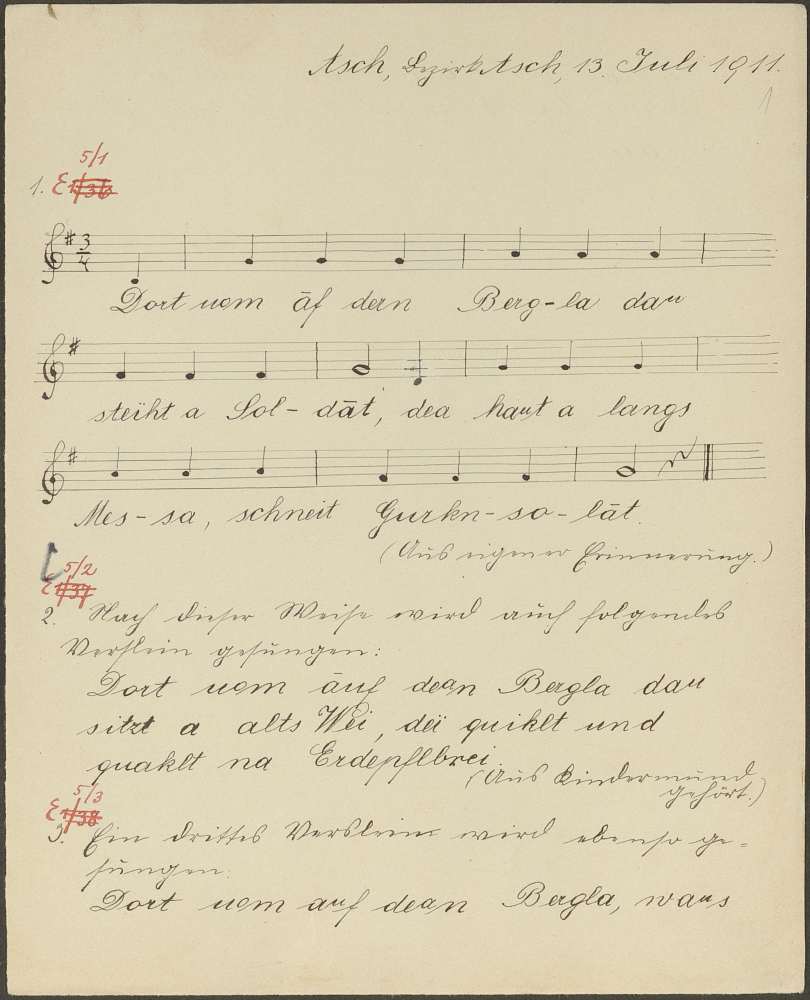 Asch, Bezirk Asch, 13. Juli 1911.
1
5/1
1. E
3/4
Dort uom äf dern Berg-la dau
stëiht a Sol-dāt, dea haut a langs
Mes-sa, schneit Gurkn-so-lāt.
(Aus eigener Erinnerung.)
5/2
E
2. Nach dieser Weise wird auch folgendes
Verslein gesungen:
Dort uom äuf dean Bergla dau
sitzt a alts Wei, dëi quiklt und
quaklt na Erdepflbrei.
(Aus Kindermund
gehört.)
5/3
E
3. Ein drittes Verslein wird ebenso ge=
sungen:
Dort uom auf dean Bergla, waus